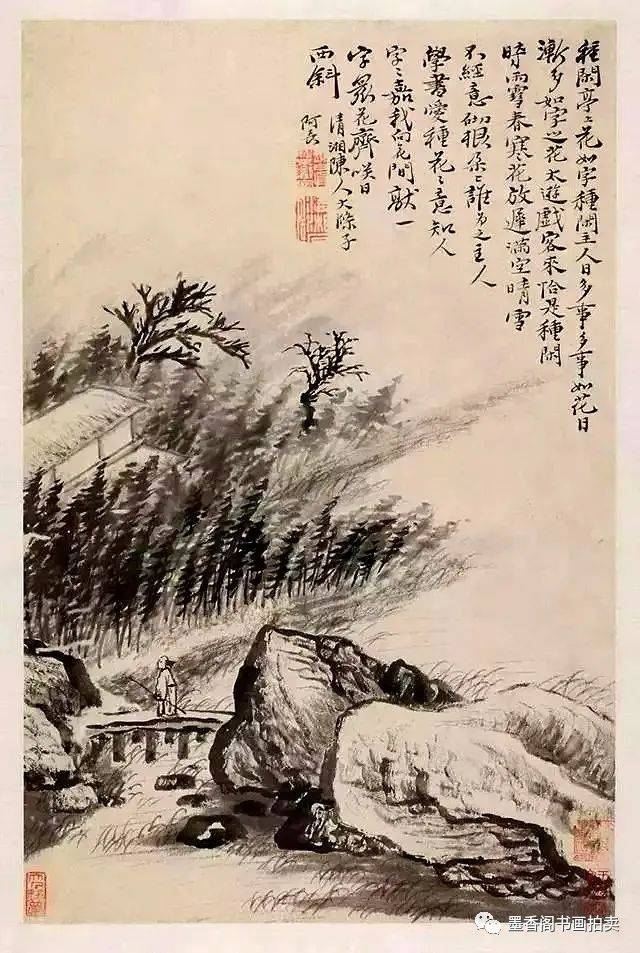 種閑亭上花如字種閑主人日多事多事如花日
漸多如字之花太遊戲客來恰是種閑
時雨雪春寒花放遲滿空晴雪
不經意砌根朵〻誰為之主人
學書愛種花〻意知人
字〻嘉我向花間獻一
字眾花齊咲日
西斜
清湘陳人大滌子
阿長
墨香阁书画拍卖